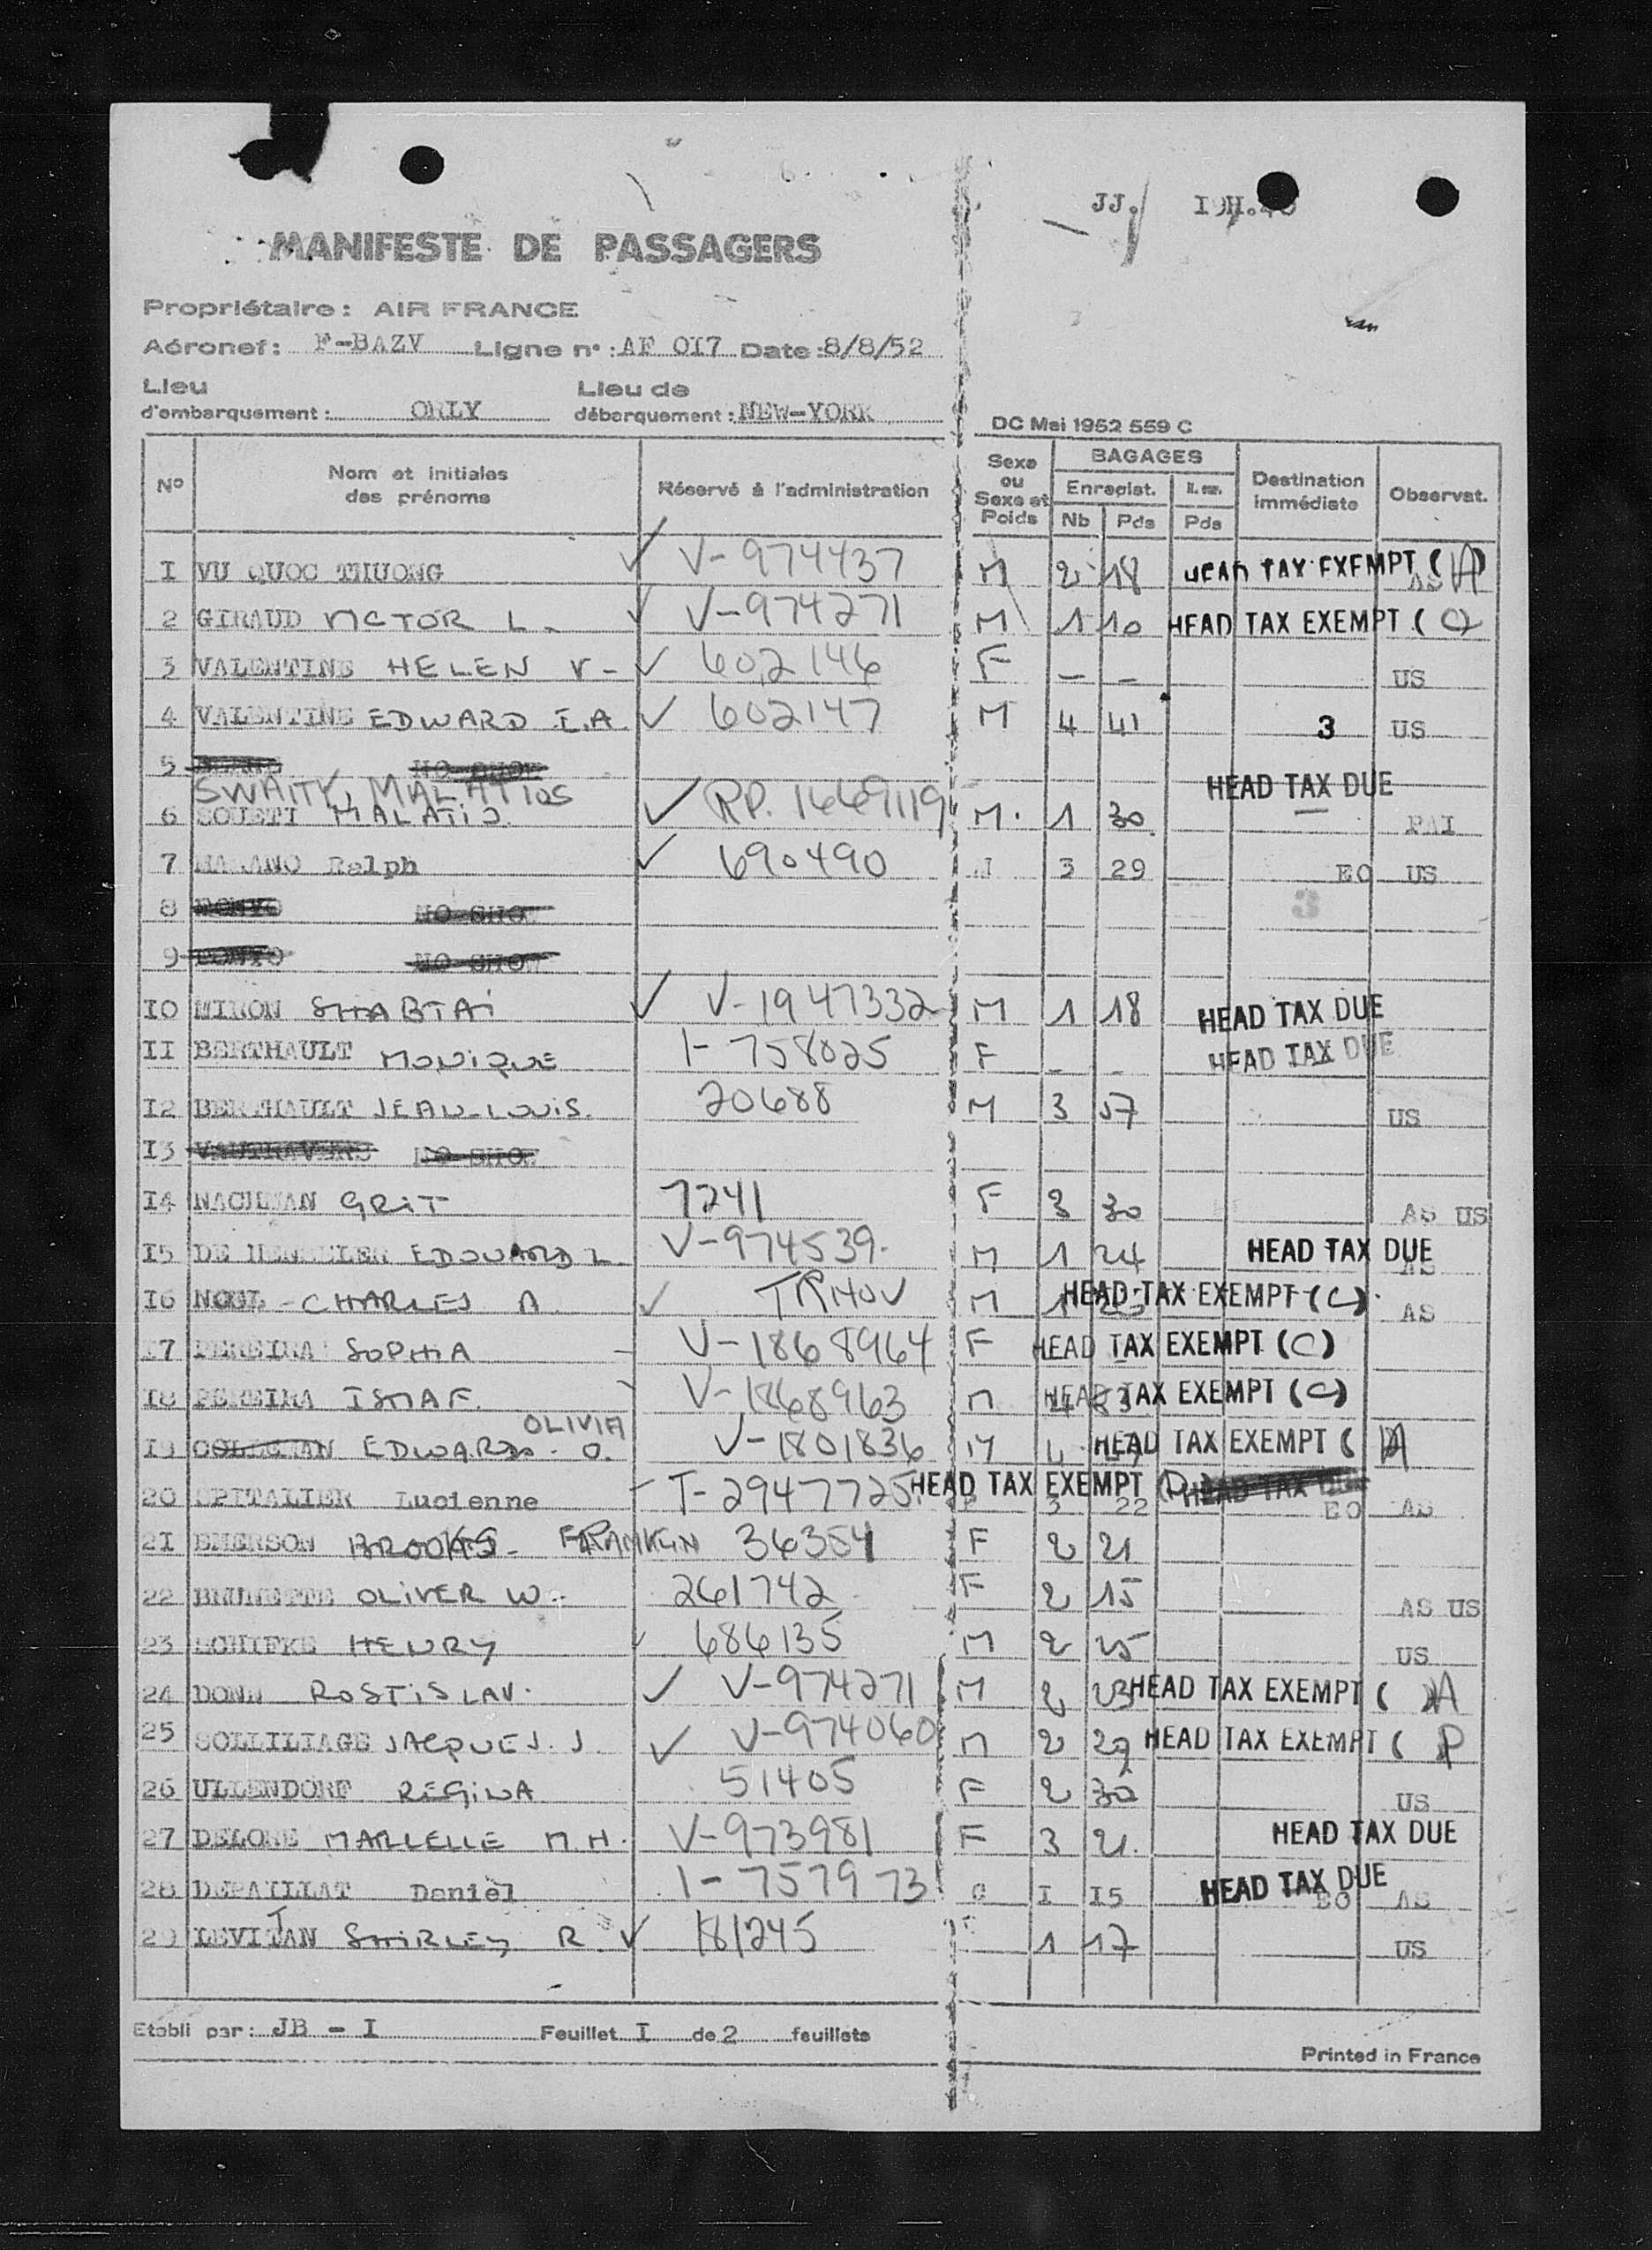 JJ.
MANIFESTE DE PASSAGERS
Propriétaire: AIR FRANCE
Aéronef: F-BAZV Ligne n°: AF OI7 Date: 8/8/52
Lieu d'embarquement: ORLY Lieu de débarquement: NEW-YORK
DC Mai 1952 559 C
N° Nom et initiales des prénoms Réservé à l'administration Sexe ou Sexe et Poids BAGAGES Enregist. Nb Pds Pds Destination immédiate Observat.
I VU QUOC THUONG ✓ V-974437 M 2 18 HEAD TAX EXEMPT (A) AS
2 GIRAUD VICTOR L. ✓ V-974271 M 1 10 HEAD TAX EXEMPT (C)
3 VALENTINE HELEN V- ✓ 602146 F - - US
4 VALENTINE EDWARD I.A. ✓ 602147 M 4 41 3 US
5 NO SHOW
SWAITY, MALATIOS HEAD TAX DUE
6 SOUETI MALATIO ✓ RP. 1669119 M. 1 30 PAI
7 Ralph ✓ 690490 3 29 EO US
8 NO SHOW 3
9 NO SHOW
IO MIRON SHABTAI ✓ V-1947332 M 1 18 HEAD TAX DUE
II BERTHAULT MONIQUE I-758025 F - - HEAD TAX DUE
I2 BERTHAULT JEAN-LOUIS. 20688 M 3 57 US
I3 VAUTRAVERS NO SHOW
I4 NACHMAN GRIT 7241 F 3 30 AS US
I5 DE EDOUARD L. V-974539. M 1 24 HEAD TAX DUE AS
I6 NOEL - CHARLES A. ✓ M 1 HEAD TAX EXEMPT (C) AS
I7 PEREIRA SOPHIA - V-1868964 F HEAD TAX EXEMPT (C)
I8 PEREIRA ISMAF. V-1868963 M 4 HEAD TAX EXEMPT (C)
OLIVIA
I9 EDWARD - O. V-1801836 M HEAD TAX EXEMPT ( A
20 SPITALIER Lucienne - T-2947725 HEAD TAX EXEMPT (D) HEAD TAX DUE 3 22 EO AS
2I EMERSON BROOKS - FRANKLIN 36354 F 2 21
22 BRUNETTE OLIVER W. 261742 F 2 15 AS US
23 SCHIFKE HENRY ✓ 686135 M 2 25 US
24 DONN ROSTISLAV. ✓ V-974271 M 2 23 HEAD TAX EXEMPT ( )A
25 SOLLILIAGE JACQUES. J. ✓ V-974060 M 2 29 HEAD TAX EXEMPT ( P
26 ULLENDORF REGINA 51405 F 2 30 US
27 DELORE MARCELLE M.H. V-973981 F 3 21. HEAD TAX DUE
28 DEPAILLAT Daniel I-757973 I I5 HEAD TAX DUE EO AS
29 LEVITAN SHIRLEY R. ✓ 181245 F 1 17 US
Etabli par: JB - I Feuillet I de 2 feuillets
Printed in France